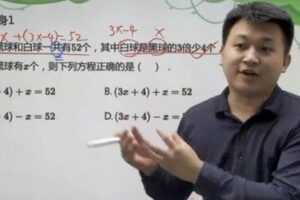 身1
x+(3x-4)=52 3x-4 x
球和白球一共有52个，其中白球是黑球的3倍少4个
球有x个，则下列方程正确的是（ ）
+4)+x=52 B.(3x+4)+x=52
-4)-x=52 D.(3x+4)-x=